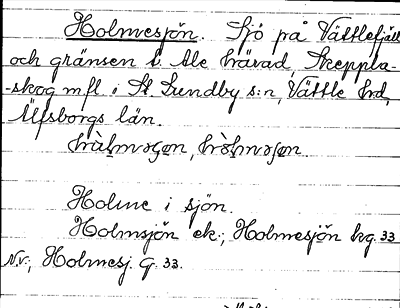 Holmesjön. Sjö på Vättlefjäll
och gränsen t. Ale härad, Skeppla-
-skog mfl i St. Lundby s:n, Vättle hd,
Älfsborgs län.
Holme i sjön.
Holmsjön ek:, Holmesjön hg. 33
N.v:, Holmesj. G. 33.